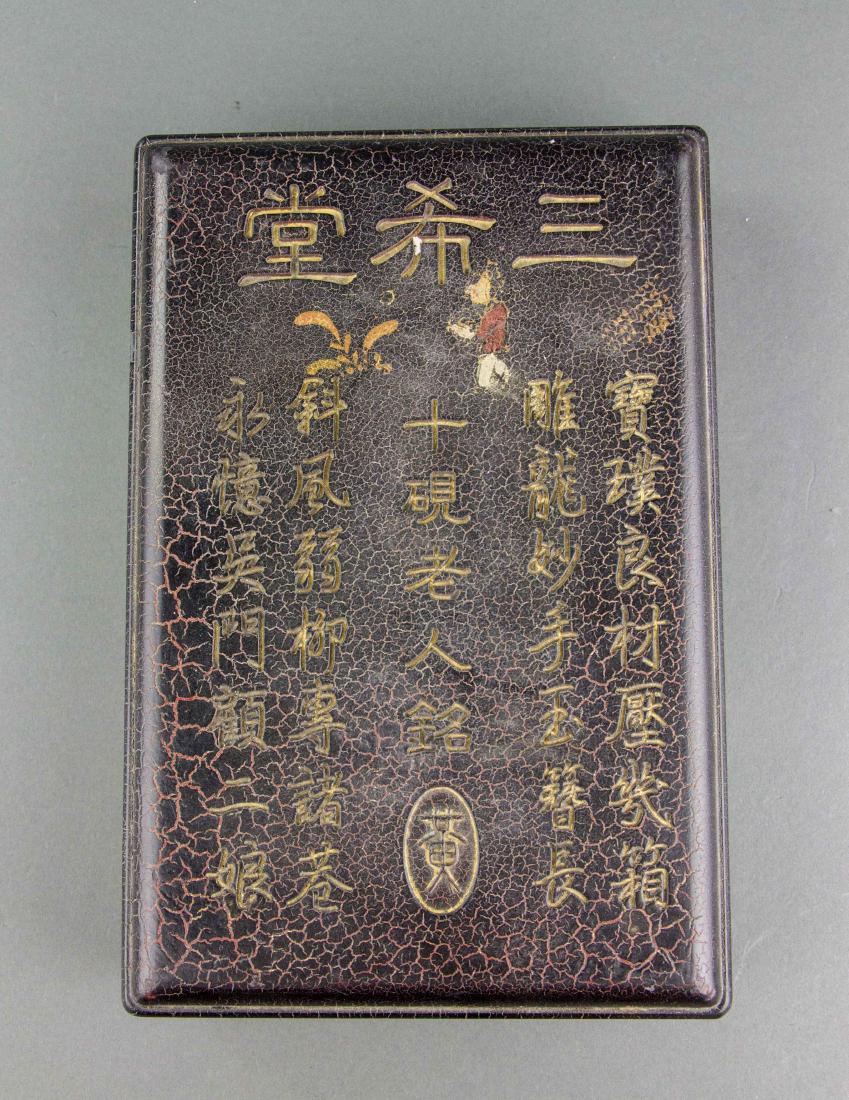 三希堂
寶璞良材壓箱
雕龍妙手玉簪長
十硯老人銘
黃
斜風弱柳專諸巷
永憶吳門顧二娘